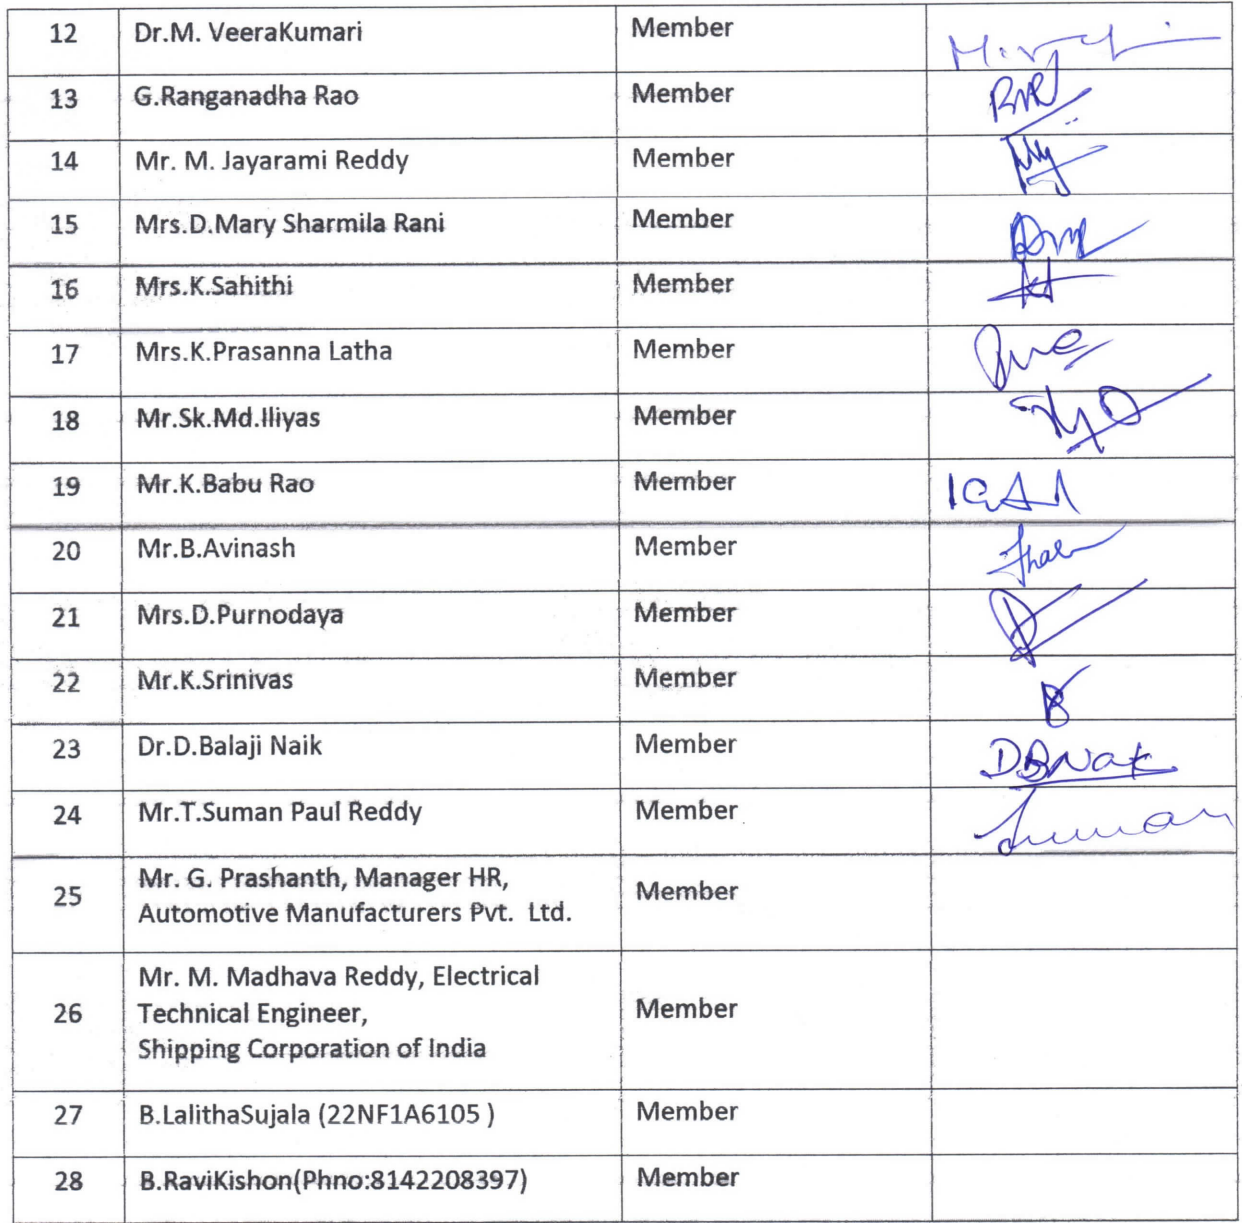 12 Dr.M. VeeraKumari Member
13 G.Ranganadha Rao Member
14 Mr. M. Jayarami Reddy Member
15 Mrs.D.Mary Sharmila Rani Member
16 Mrs.K.Sahithi Member
17 Mrs.K.Prasanna Latha Member
18 Mr.Sk.Md.Iliyas Member
19 Mr.K.Babu Rao Member
20 Mr.B.Avinash Member
21 Mrs.D.Purnodaya Member
22 Mr.K.Srinivas Member
23 Dr.D.Balaji Naik Member DBNaik
24 Mr.T.Suman Paul Reddy Member Suman
25 Mr. G. Prashanth, Manager HR, Member
Automotive Manufacturers Pvt. Ltd.
26 Mr. M. Madhava Reddy, Electrical Member
Technical Engineer,
Shipping Corporation of India
27 B.LalithaSujala (22NF1A6105 ) Member
28 B.RaviKishon(Phno:8142208397) Member